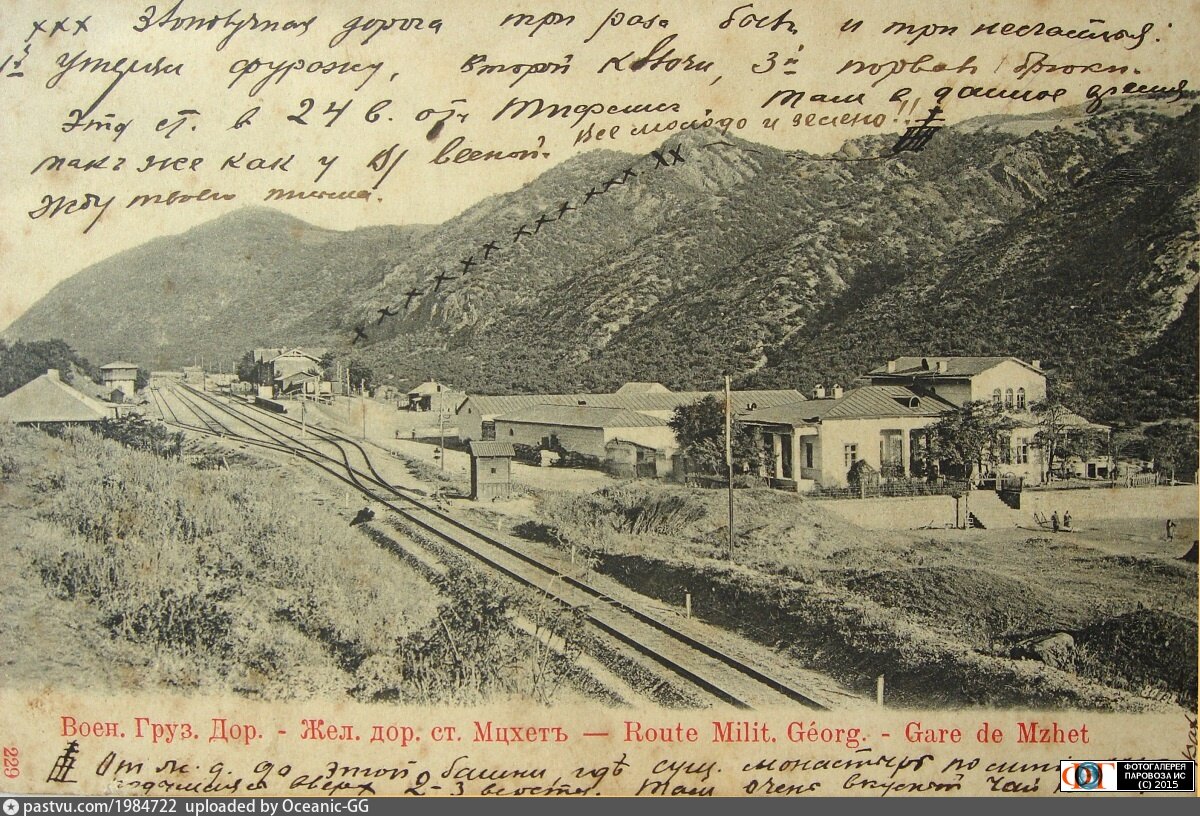 ххх Злополучная дорога три раза былъ и три несчастья:
1й утеряли фуражку, второй ключи, 3й порвал брюки.
Это ст. в 24 в. от Тифлиса. Там в данное время
такъ же как у весной. Все молодо и зелено!!
Жду твоего письма.
Воен. Груз. Дор. - Жел. дор. ст. Мцхетъ — Route Milit. Géorg. - Gare de Mzhet
229
От ж. д. до этой башни, гдѣ сущ. монастырь
вверх 2-3 версты. Там очень вкусный чай
ФОТОГАЛЕРЕЯ
ПАРОВОЗА ИС
(С) 2015
pastvu.com/1984722 uploaded by Oceanic-GG